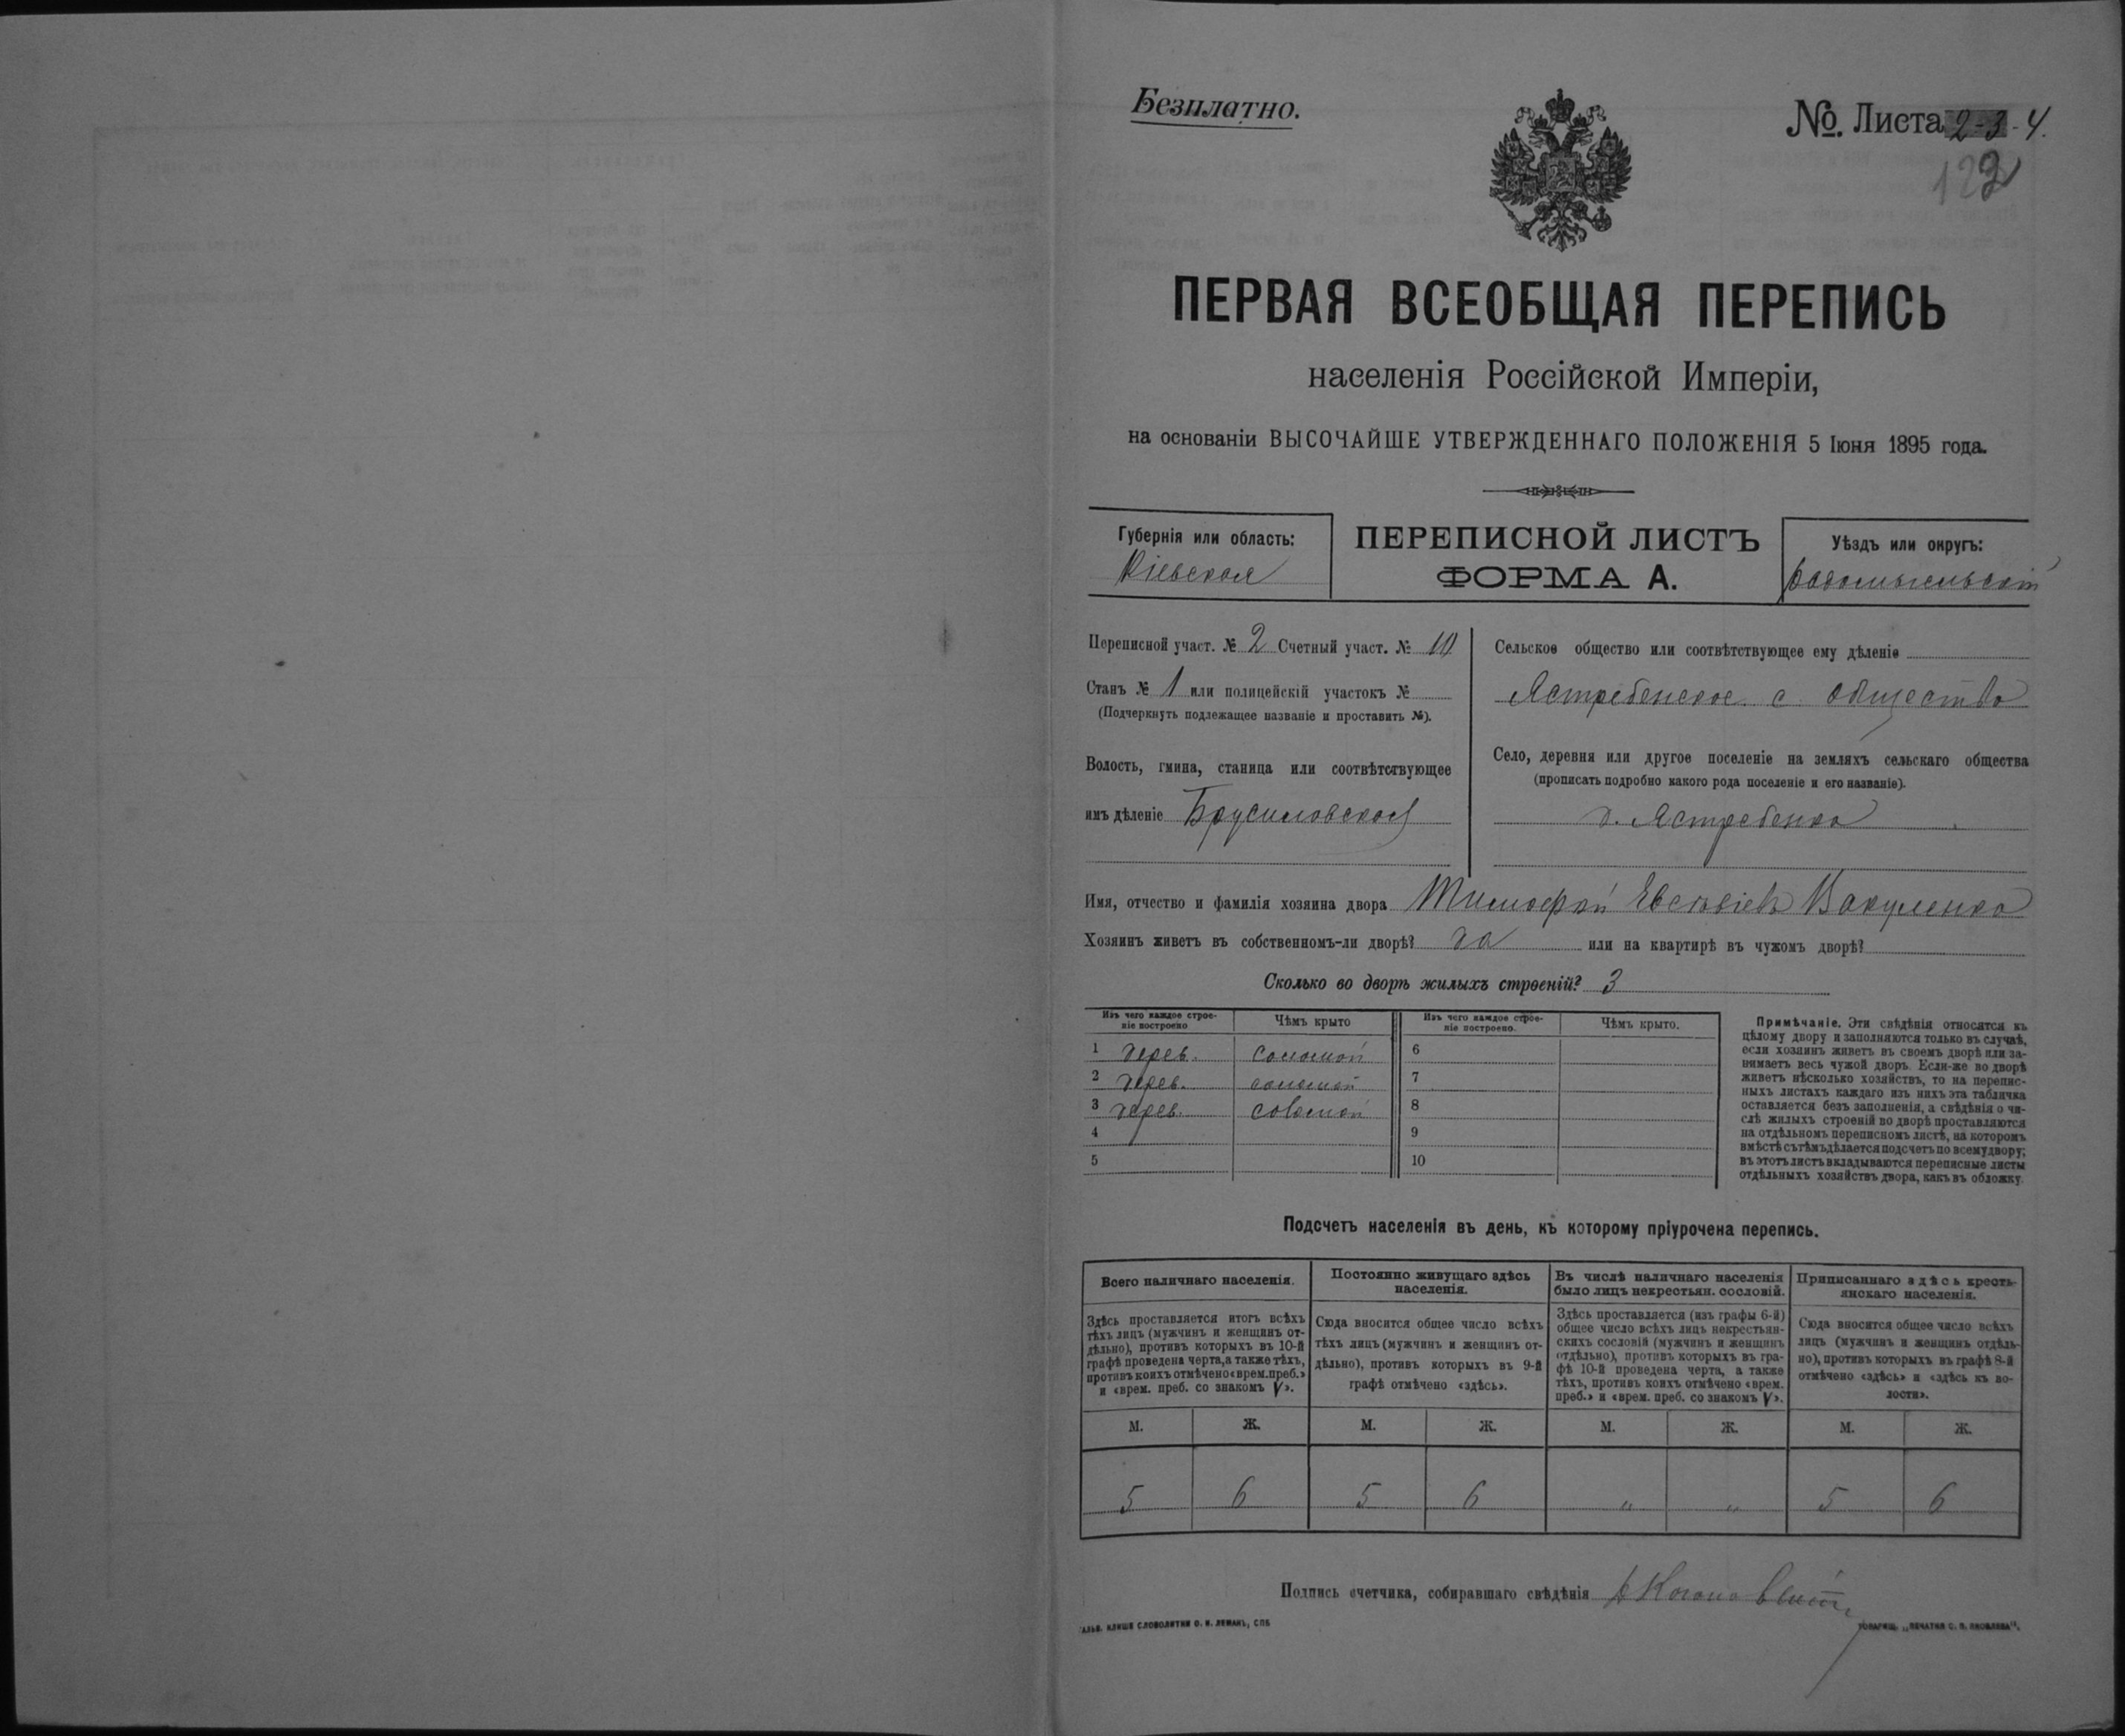 Безплатно.
№. Листа 2-3-4.
ПЕРВАЯ ВСЕОБЩАЯ ПЕРЕПИСЬ
населенія Россійской Имперіи,
на основаніи ВЫСОЧАЙШЕ УТВЕРЖДЕННАГО ПОЛОЖЕНІЯ 5 Іюня 1895 года.
Губернія или область:
Кіевская
ПЕРЕПИСНОЙ ЛИСТЪ
ФОРМА А.
Уѣздъ или округъ:
Радомысльскій
Переписной участ. № 2 Счетный участ. № 10
Станъ № 1 или полицейскій участокъ №
(Подчеркнуть подлежащее названіе и проставить №).
Волость, гмина, станица или соотвѣтствующее
имъ дѣленіе Брусиловская
Сельское общество или соотвѣтствующее ему дѣленіе
Ястребенское с. общество
Село, деревня или другое поселеніе на земляхъ сельскаго общества
(прописать подробно какого рода поселеніе и его названіе).
д. Ястребенка
Имя, отчество и фамилія хозяина двора Тимофей Вакуленко
Хозяинъ живетъ въ собственномъ-ли дворѣ? да или на квартирѣ въ чужомъ дворѣ?
Сколько во дворѣ жилыхъ строеній? 3
Изъ чего каждое строе-
ніе построено
Чѣмъ крыто
Изъ чего каждое строе-
ніе построено.
Чѣмъ крыто.
1 дерев. соломой 6
2 дерев. соломой 7
3 дерев. соломой 8
4 9
5 10
Примѣчаніе. Эти свѣдѣнія относятся къ
цѣлому двору и заполняются только въ случаѣ,
если хозяинъ живетъ въ своемъ дворѣ или за-
нимаетъ весь чужой дворъ. Если-же во дворѣ
живетъ нѣсколько хозяйствъ, то на перепис-
ныхъ листахъ каждаго изъ нихъ эта табличка
оставляется безъ заполненія, а свѣдѣнія о чи-
слѣ жилыхъ строеній во дворѣ проставляются
на отдѣльномъ переписномъ листѣ, на которомъ
вмѣстѣ съ тѣмъ дѣлается подсчетъ по всему двору;
въ этотъ листъ вкладываются переписные листы
отдѣльныхъ хозяйствъ двора, какъ въ обложку.
Подсчетъ населенія въ день, къ которому пріурочена перепись.
Всего наличнаго населенія.
Здѣсь проставляется итогъ всѣхъ
тѣхъ лицъ (мужчинъ и женщинъ от-
дѣльно), противъ которыхъ въ 10-й
графѣ проведена черта, а также тѣхъ,
противъ коихъ отмѣчено «врем. преб.»
и «врем. преб. со знакомъ V».
Постоянно живущаго здѣсь
населенія.
Сюда вносится общее число всѣхъ
тѣхъ лицъ (мужчинъ и женщинъ от-
дѣльно), противъ которыхъ въ 9-й
графѣ отмѣчено «здѣсь».
Въ числѣ наличнаго населенія
было лицъ некрестьян. сословій.
Здѣсь проставляется (изъ графы 6-й)
общее число всѣхъ лицъ некрестьян-
скихъ сословій (мужчинъ и женщинъ
отдѣльно), противъ которыхъ въ гра-
фѣ 10-й проведена черта, а также
тѣхъ, противъ коихъ отмѣчено «врем.
преб.» и «врем. преб. со знакомъ V».
Приписаннаго здѣсь кресть-
янскаго населенія.
Сюда вносится общее число всѣхъ
лицъ (мужчинъ и женщинъ отдѣль-
но), противъ которыхъ въ графѣ 8-й
отмѣчено «здѣсь» и «здѣсь къ во-
лости».
М. Ж. М. Ж. М. Ж. М. Ж.
5 6 5 6 " " 5 6
Подпись счетчика, собиравшаго свѣдѣнія
КЛИШЕ СЛОВОЛИТНИ О. И. ЛЕМАНЪ, СПБ
ТОВАРИЩ. „ПЕЧАТНЯ С. П. ЯКОВЛЕВА“.